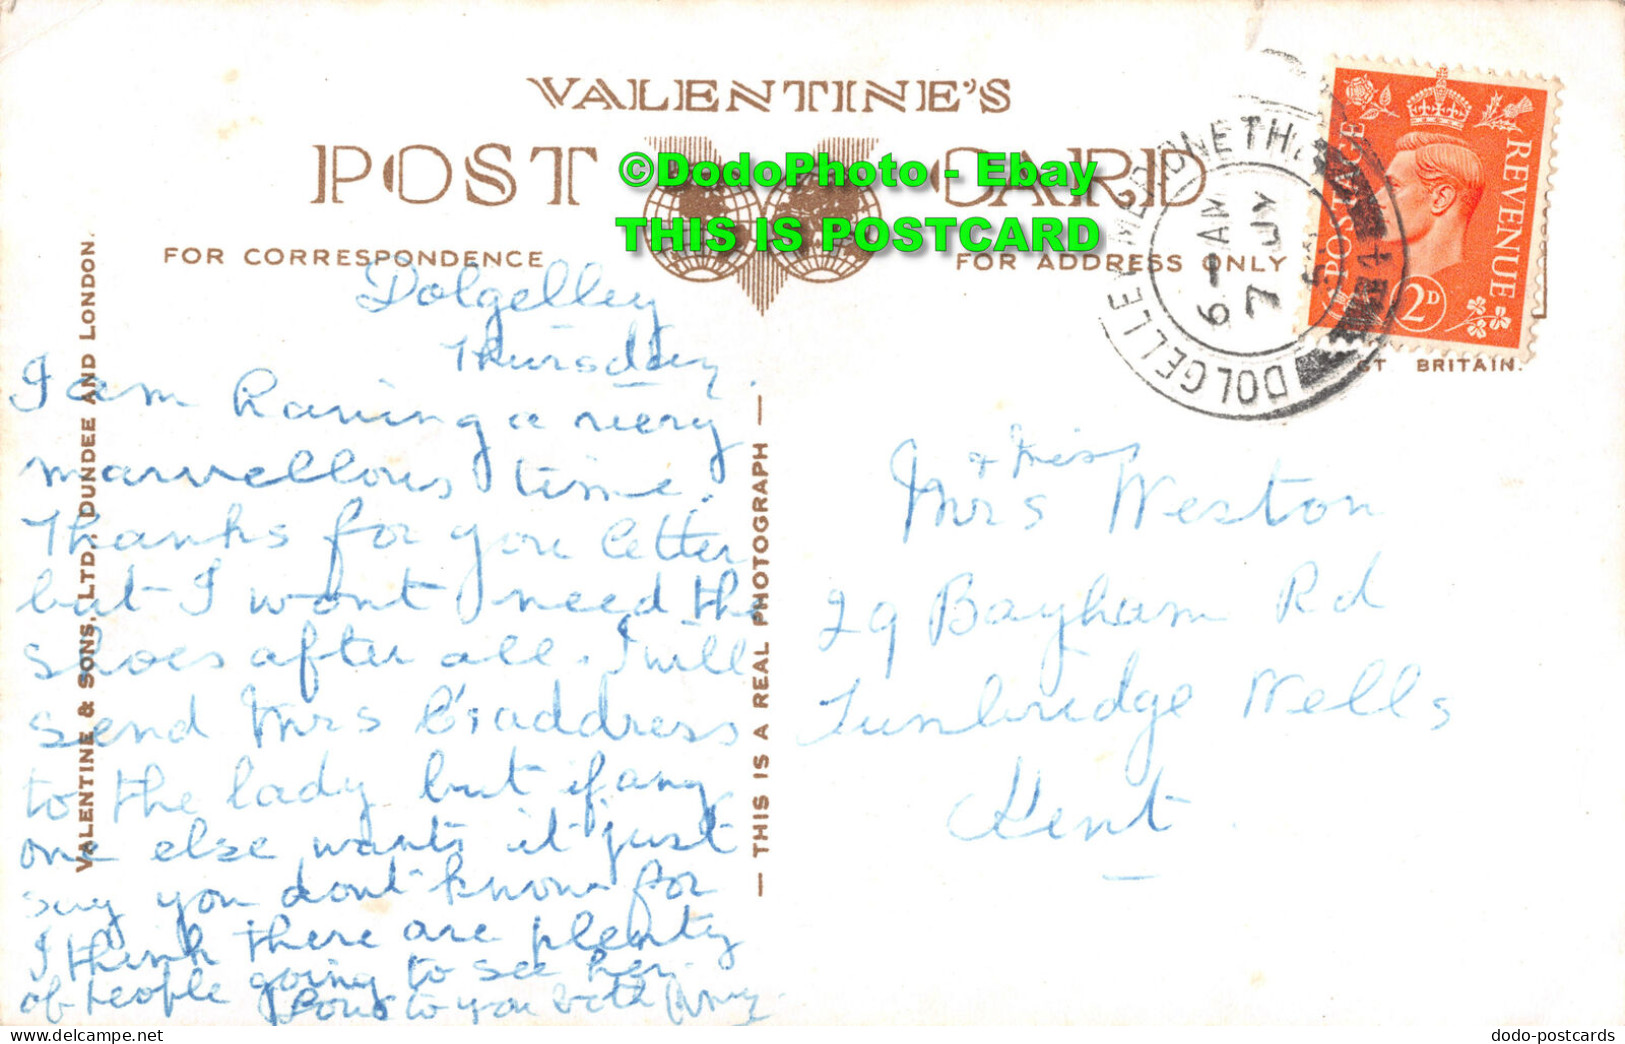 VALENTINE'S
POST CARD
©DodoPhoto - Ebay
THIS IS POSTCARD
FOR CORRESPONDENCE
FOR ADDRESS ONLY
DOLGELLEY MERIONETH
6-AM
7 JY
POSTAGE REVENUE
2D
GT BRITAIN.
VALENTINE & SONS, LTD., DUNDEE AND LONDON.
— THIS IS A REAL PHOTOGRAPH —
Dolgelley
Thursday.
I am having a very
marvellous time.
Thanks for you letter
but I wont need the
shoes after all. I will
send Mrs address
to the lady but if any
one else wants it just
say you dont know for
I think there are plenty
of people going to see her.
to you both
& Miss
Mrs Weston
29 Bayham Rd
Tunbridge Wells
Kent
dodo-postcards